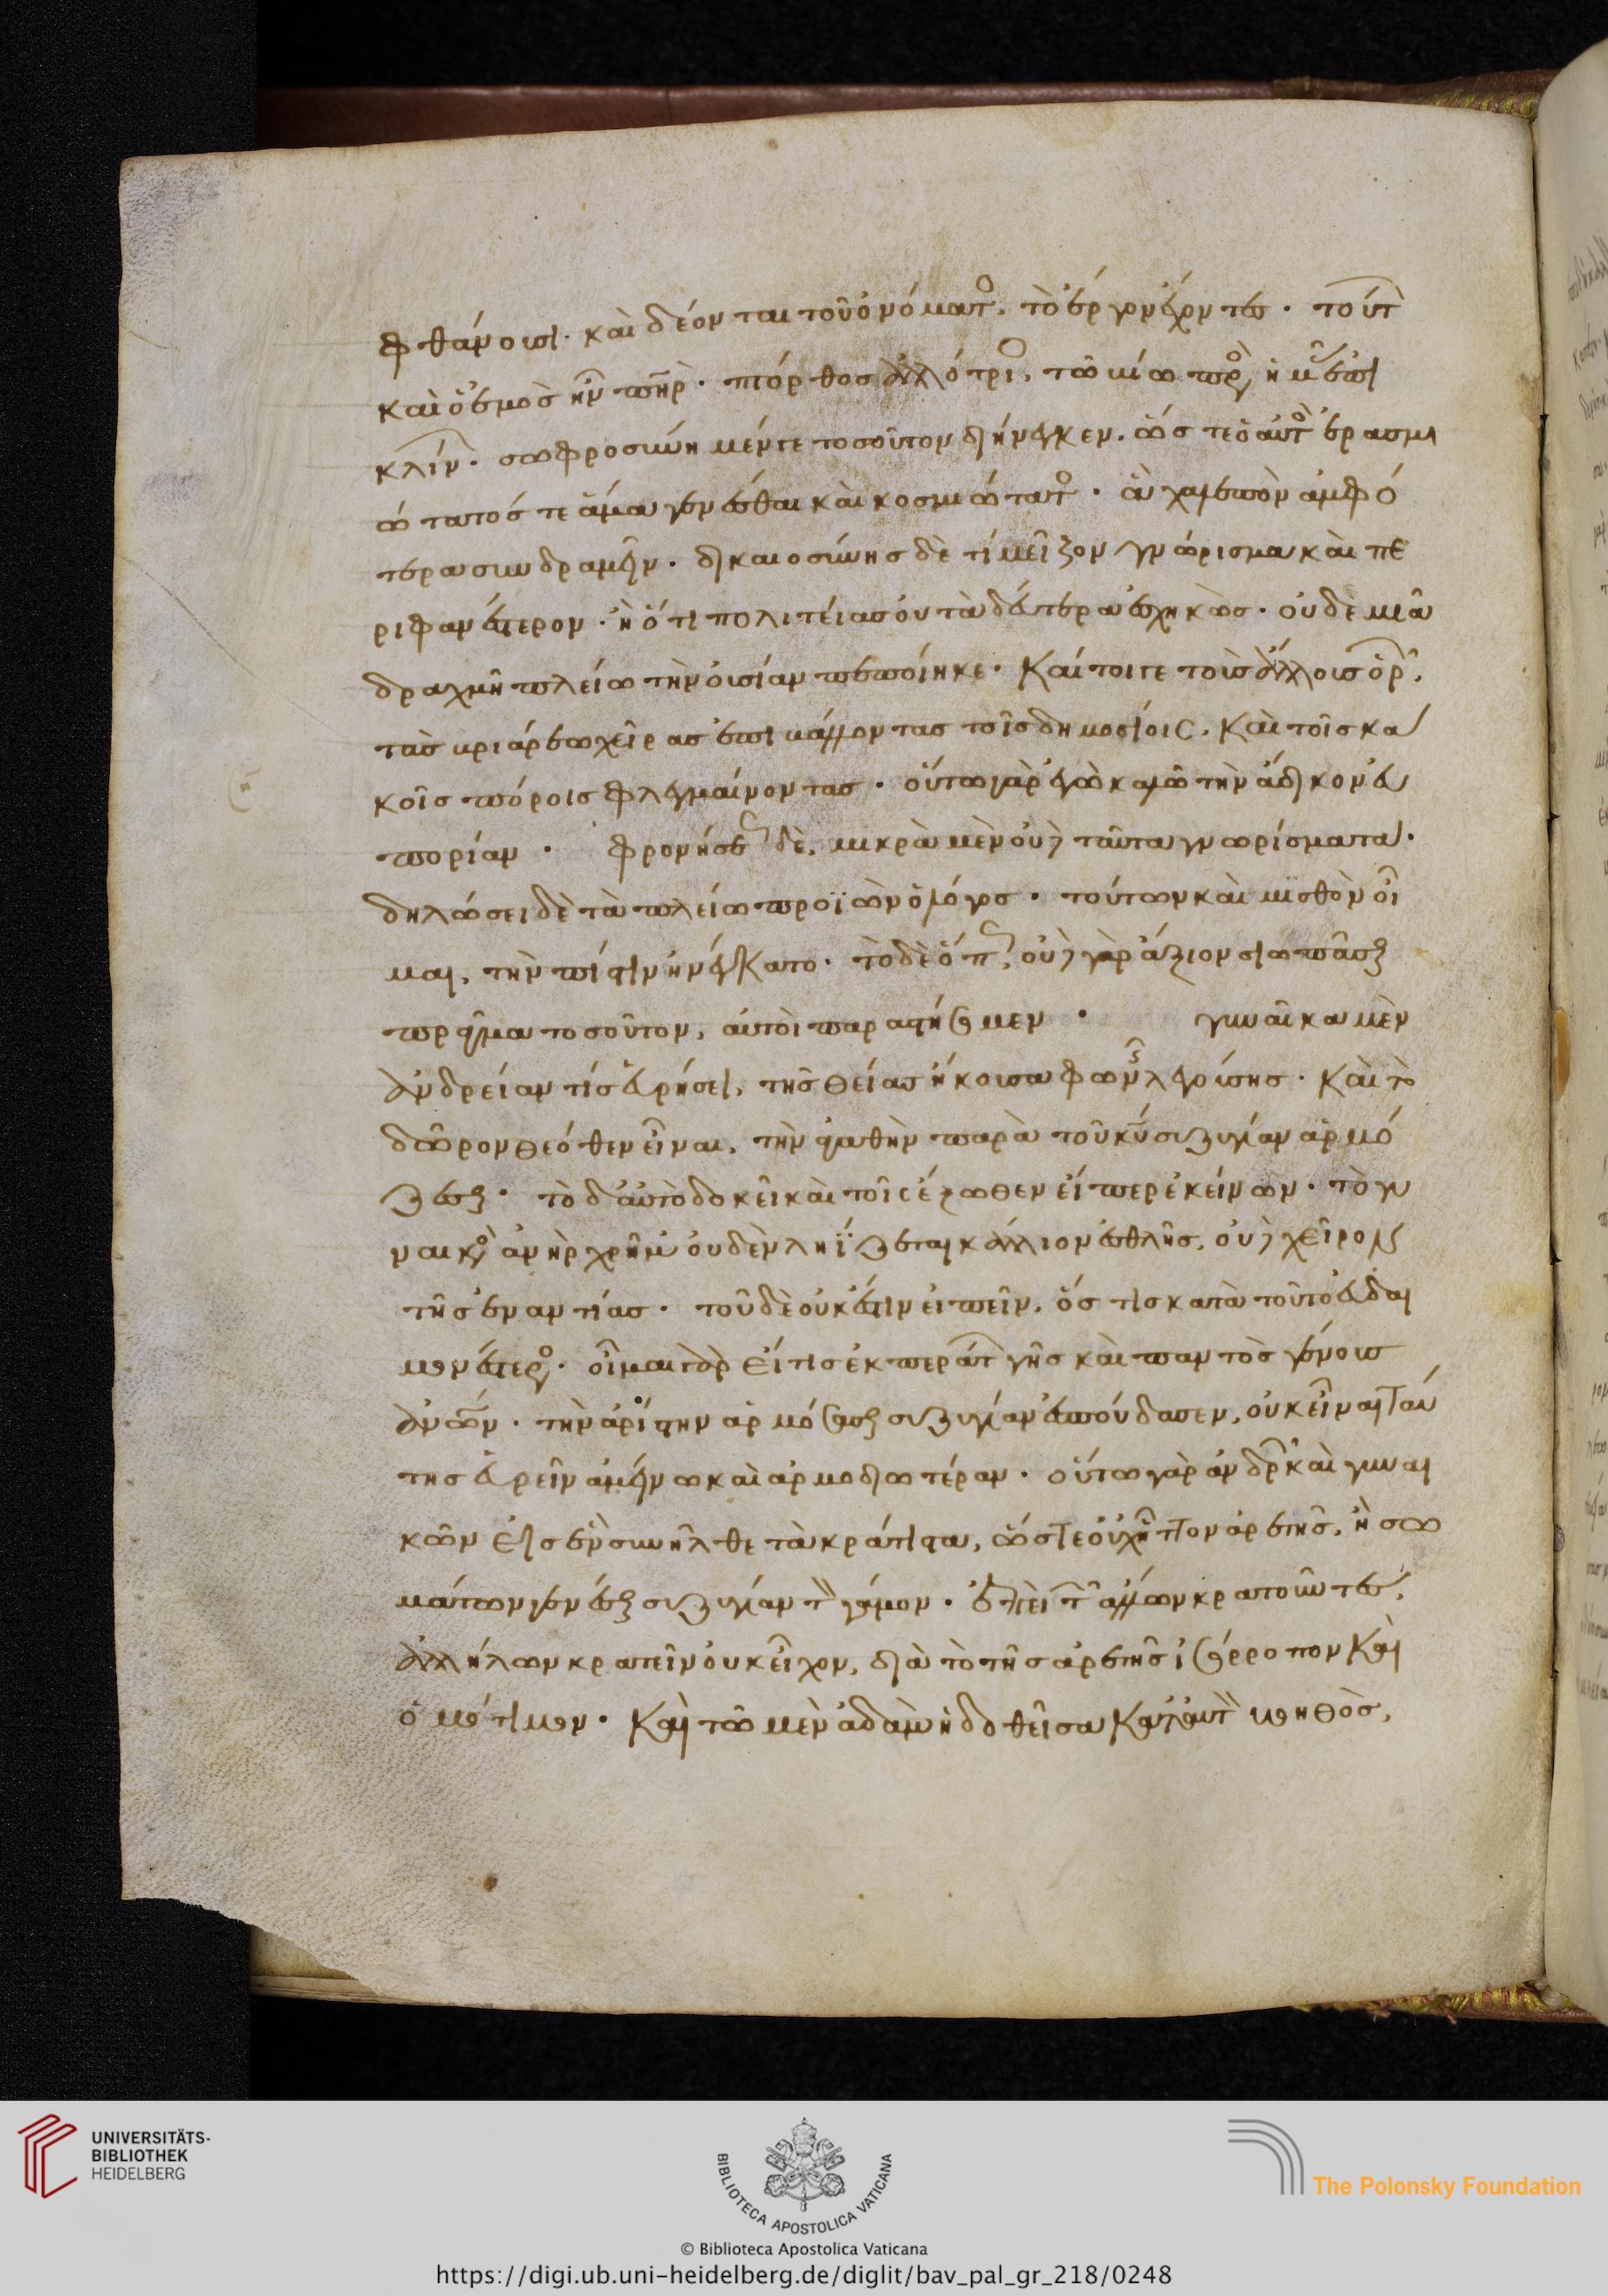 φθάνουσι· καὶ δέονται τοῦ ὀνόματος, τὸ ἔργον ἔχοντες· τούτων
καὶ ὁ ἐμὸς ἦν πηρ· πτόρθος ἀλλότριος, τῶ υἱῶ πρὸς ἡμᾶς ἐπι
κλίνων· σωφροσύνη μέν γε τοσοῦτον διήνεγκεν· ὥστε ὁ αὐτὸς ἐρασμι
ώτατός τε ἅμα γενέσθαι καὶ κοσμιώτατος· ἃ χαλεπὸν ἀμφό
τερα συνδραμεῖν· δικαιοσύνης δὲ τί μεῖζον γνώρισμα καὶ πε
ριφανέστερον· ἢ ὅτι πολιτείας οὐ τὰ δεύτερα ἐσχηκὼς· οὐδὲ μιᾶ
δραχμῆ πλείω τὴν οὐσίαν πεποίηκε· καίτοιγε τοὺς ἄλλους ὁρῶν,
τὰς βριάρεω χεῖρας ἐπιβάλλοντας τοῖς δημοσίοις· καὶ τοῖς κα
κοῖς πόροις φλεγμαίνοντας· οὕτω γὰρ ἐγὼ καλῶ τὴν ἄδικον εὐ
πορίαν· φρονήσεως δὲ, μικρὰ μὲν οὐδὲ ταῦτα γνωρίσματα·
δηλώσει δὲ τὰ πλείω προϊὼν ὁ λόγος· τούτων καὶ μισθὸν οἶ
μαι, τὴν πίστιν ἠνέγκατο· τὸ δὲ ὅπως, οὐδὲ γὰρ ἄξιον σιωπᾶσθαι
πρᾶγμα τοσοῦτον, αὐτοὶ παραστήσομεν· γυναῖκα μὲν
ἀνδρείαν τίς εὑρήσει, τῆς θείας ἤκουσα φωνῆς λεγούσης· καὶ τὸ
δῶρον θεόθεν εἶναι, τὴν ἀγαθὴν παρὰ τοῦ κυ συζυγίαν ἁρμό
ζεσθαι· τὸ δ' αὐτὸ δοκεῖ καὶ τοῖς ἔξωθεν εἴπερ ἐκείνων· τὸ γυ
ναικὸς ἀνὴρ χρῆμ' οὐδὲν ληΐζεται κάλλιον ἐσθλῆς, οὐδὲ χεῖρον
τῆς ἐναντίας· τοῦ δὲ οὐκ ἔστιν εἰπεῖν, ὅστις κατὰ τοῦτο εὐδαι
μονέστερος· οἶμαι γὰρ εἴ τις ἐκ περάτων γῆς καὶ παντὸς γένους
ἀνων· τὴν ἀρίστην ἁρμόσασθαι συζυγίαν ἐσπούδασεν, οὐκ εἶναι ταύ
της εὑρεῖν ἀμείνω καὶ ἁρμοδιωτέραν· οὕτω γὰρ ἀνδρῶν καὶ γυναι
κῶν εἰς ἓν συνῆλθε τὰ κράτιστα, ὥστε οὐχ ἧττον ἀρετῆς, ἢ σω
μάτων γενέσθαι συζυγίαν τὸν γάμον· ἐπεὶ τῶν ἄλλων κρατοῦντες,
ἀλλήλων κρατεῖν οὐκ εἶχον, διὰ τὸ τῆς ἀρετῆς ἰσόρροπον καὶ
ὁμότιμον· καὶ τῶ μὲν ἀδὰμ ἡ δοθεῖσα κατ' αὐτὸν βοηθὸς,
UNIVERSITÄTS-
BIBLIOTHEK
HEIDELBERG
BIBLIOTECA APOSTOLICA VATICANA
The Polonsky Foundation
© Biblioteca Apostolica Vaticana
https://digi.ub.uni-heidelberg.de/diglit/bav_pal_gr_218/0248